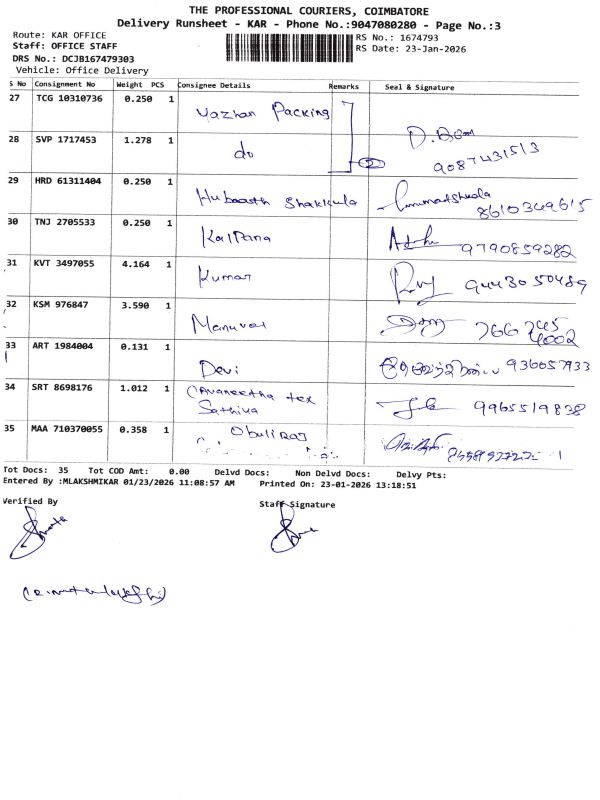 THE PROFESSIONAL COURIERS, COIMBATORE
Delivery Runsheet - KAR - Phone No.:9047080280 - Page No.:3
Route: KAR OFFICE
RS No.: 1674793
Staff: OFFICE STAFF
RS Date: 23-Jan-2026
DRS No.: DCJB167479303
Vehicle: Office Delivery
S No Consignment No Weight PCS Consignee Details Remarks Seal & Signature
27 TCG 10310736 0.250 1 Vazhan Packing
28 SVP 1717453 1.278 1 do 2 9087431513
29 HRD 61311404 0.250 1 Shakkula 8610349615
30 TNJ 2705533 0.250 1 Kalpana 9790859282
31 KVT 3497055 4.164 1 Kumar 9443050489
32 KSM 976847 3.590 1
33 ART 1984004 0.131 1 Devi
34 SRT 8698176 1.012 1 tex
Sathiya 9965519838
35 MAA 710370055 0.358 1 Obuliraj
Tot Docs: 35 Tot COD Amt: 0.00 Delvd Docs: Non Delvd Docs: Delvy Pts:
Entered By :MLAKSHMIKAR 01/23/2026 11:08:57 AM Printed On: 23-01-2026 13:18:51
Verified By Staff Signature